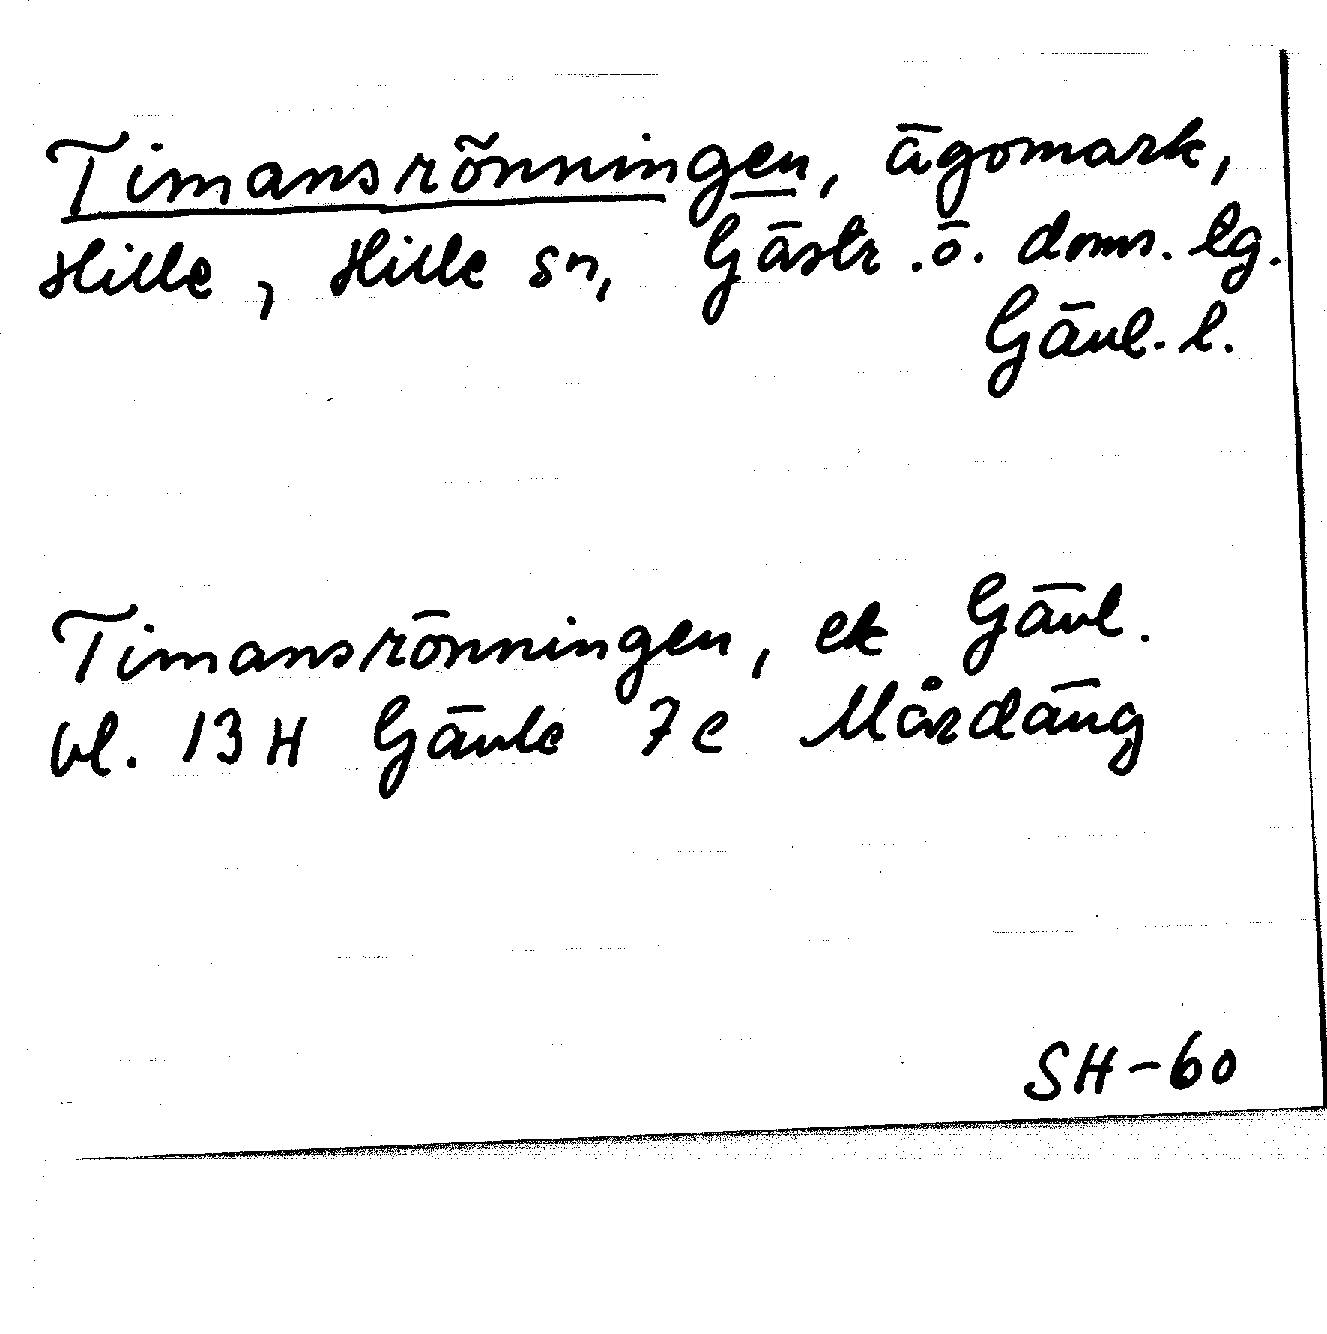 Timansrönningen, ägomark,
Hille, Hille sn, Gästr. ö. doms. lg.
Gävl. l.
Timansrönningen, ek Gävl.
bl. 13 H Gävle 7 c Mårdäng
SH-60